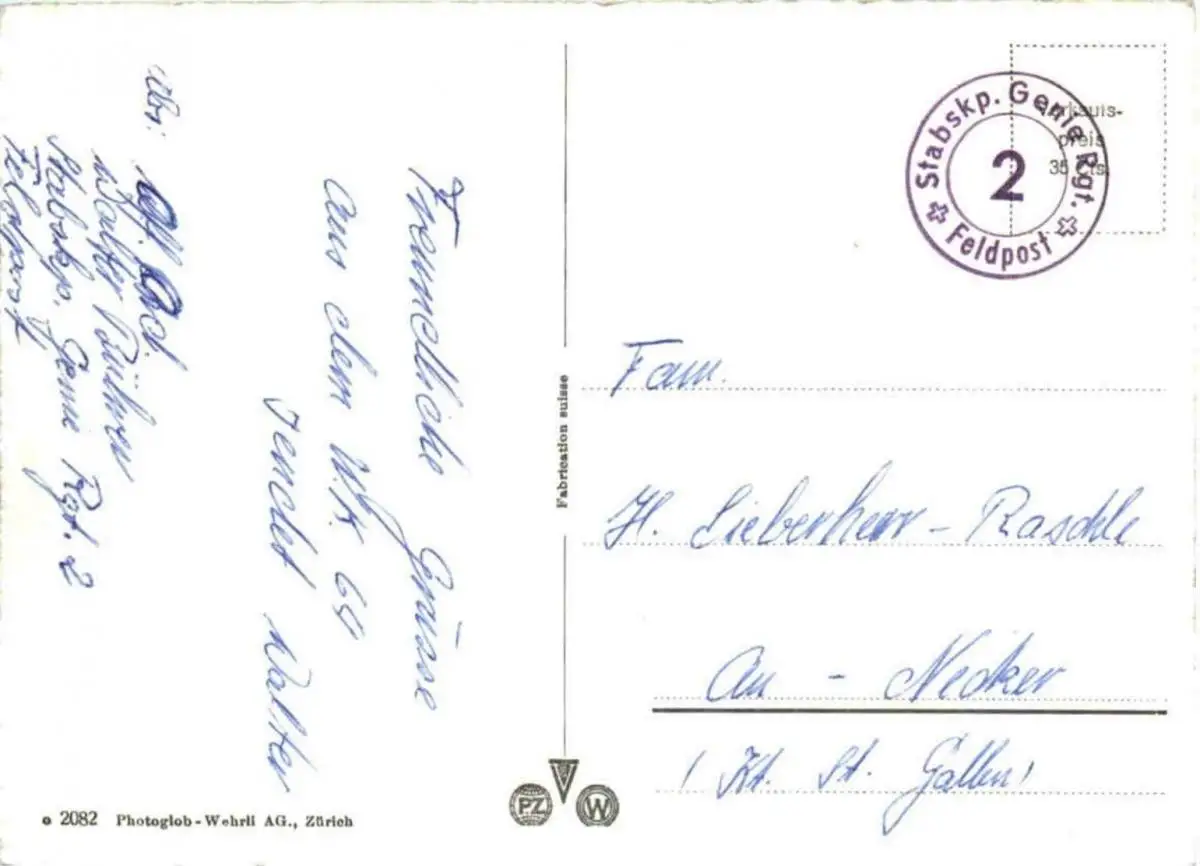 Abs:
Walter Bührer
Stabskp. Genie Rgt. 2
Feldpost
Freundliche Grüsse
aus dem WK 64
sendet Walter
Stabskp. Genie Rgt.
2
Feldpost
Verkaufs-
preis
35 Cts.
Fabrication suisse
Fam.
H. Lieberherr - Raschle
Au - Necker
(Kt. St. Gallen)
2082 Photoglob-Wehrli AG., Zürich
PZ W